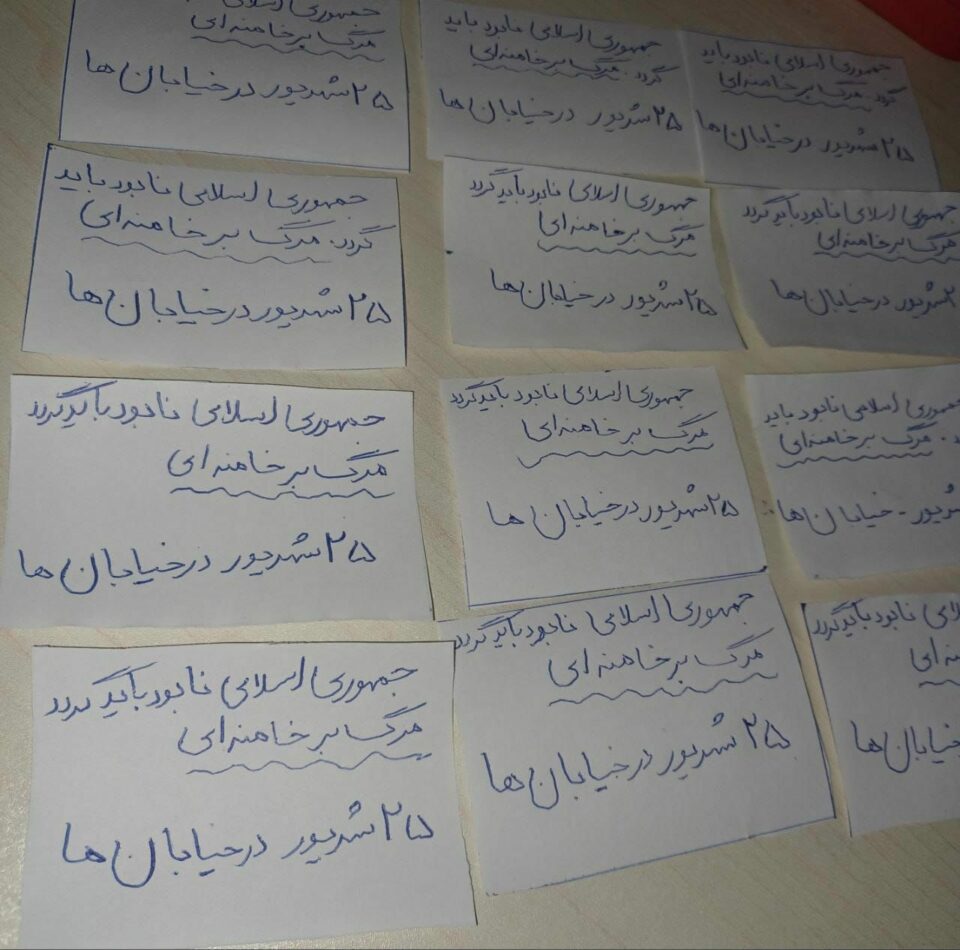 جمهوری اسلامی
مرگ بر خامنه‌ای
۲۵ شهریور در خیابان‌ها
جمهوری اسلامی نابود باید
گردد. مرگ بر خامنه‌ای
۲۵ شهریور در خیابان‌ها
جمهوری اسلامی نابود باید
گردد. مرگ بر خامنه‌ای
۲۵ شهریور در خیابان‌ها
جمهوری اسلامی نابود باید
گردد. مرگ بر خامنه‌ای
۲۵ شهریور در خیابان‌ها
جمهوری اسلامی نابود باید گردد
مرگ بر خامنه‌ای
۲۵ شهریور در خیابان‌ها
جمهوری اسلامی نابود باید گردد
مرگ بر خامنه‌ای
شهریور در خیابان‌ها
جمهوری اسلامی نابود باید گردد
مرگ بر خامنه‌ای
۲۵ شهریور در خیابان‌ها
جمهوری اسلامی نابود باید گردد
مرگ بر خامنه‌ای
۲۵ شهریور در خیابان‌ها
جمهوری اسلامی نابود باید
مرگ بر خامنه‌ای
خیابان‌ها
جمهوری اسلامی نابود باید گردد
مرگ بر خامنه‌ای
۲۵ شهریور در خیابان‌ها
جمهوری اسلامی نابود باید گردد
مرگ بر خامنه‌ای
۲۵ شهریور در خیابان‌ها
نابود باید گردد
خیابان‌ها